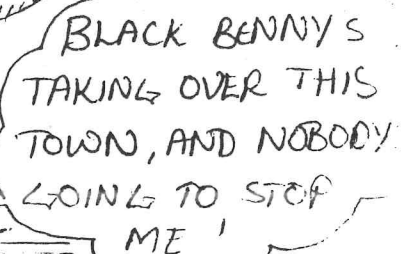 BLACK BENNYS
TAKING OVER THIS
TOWN, AND NOBODY
GOING TO STOP
ME !